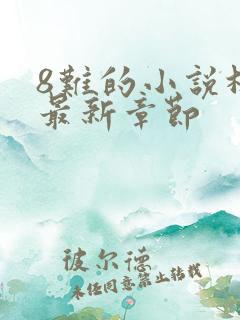 8難的小說
最新章節
彼尔德
未经同意禁止转载